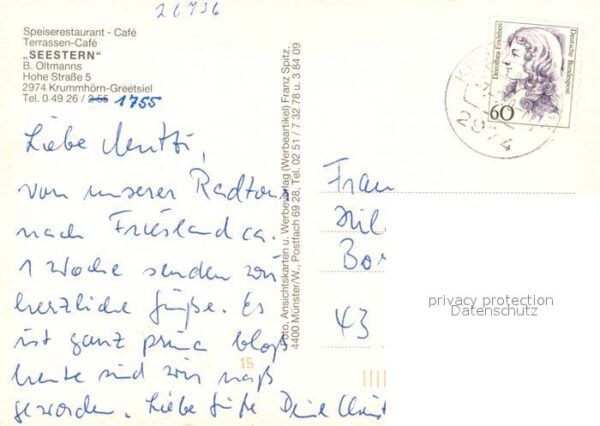 26936
Speiserestaurant - Café
Terrassen-Café
„SEESTERN"
B. Oltmanns
Hohe Straße 5
2974 Krummhörn-Greetsiel
Tel. 0 49 26 / 2 55 1755
Dorothea Erxleben
Deutsche Bundespost
60
2974
Liebe Mutti,
von unserer Radtour
nach Friesland ca.
1 Woche senden wir
herzliche Grüße. Es
ist ganz prima bloß
heute sind wir naß
geworden. Liebe Grüße Deine
Foto, Ansichtskarten u. Werbeverlag (Werbeartikel) Franz Spitz,
4400 Münster/W., Postfach 69 28, Tel. 02 51 / 7 32 78 u. 3 84 09
Frau
Hil
43
15
privacy protection
Datenschutz